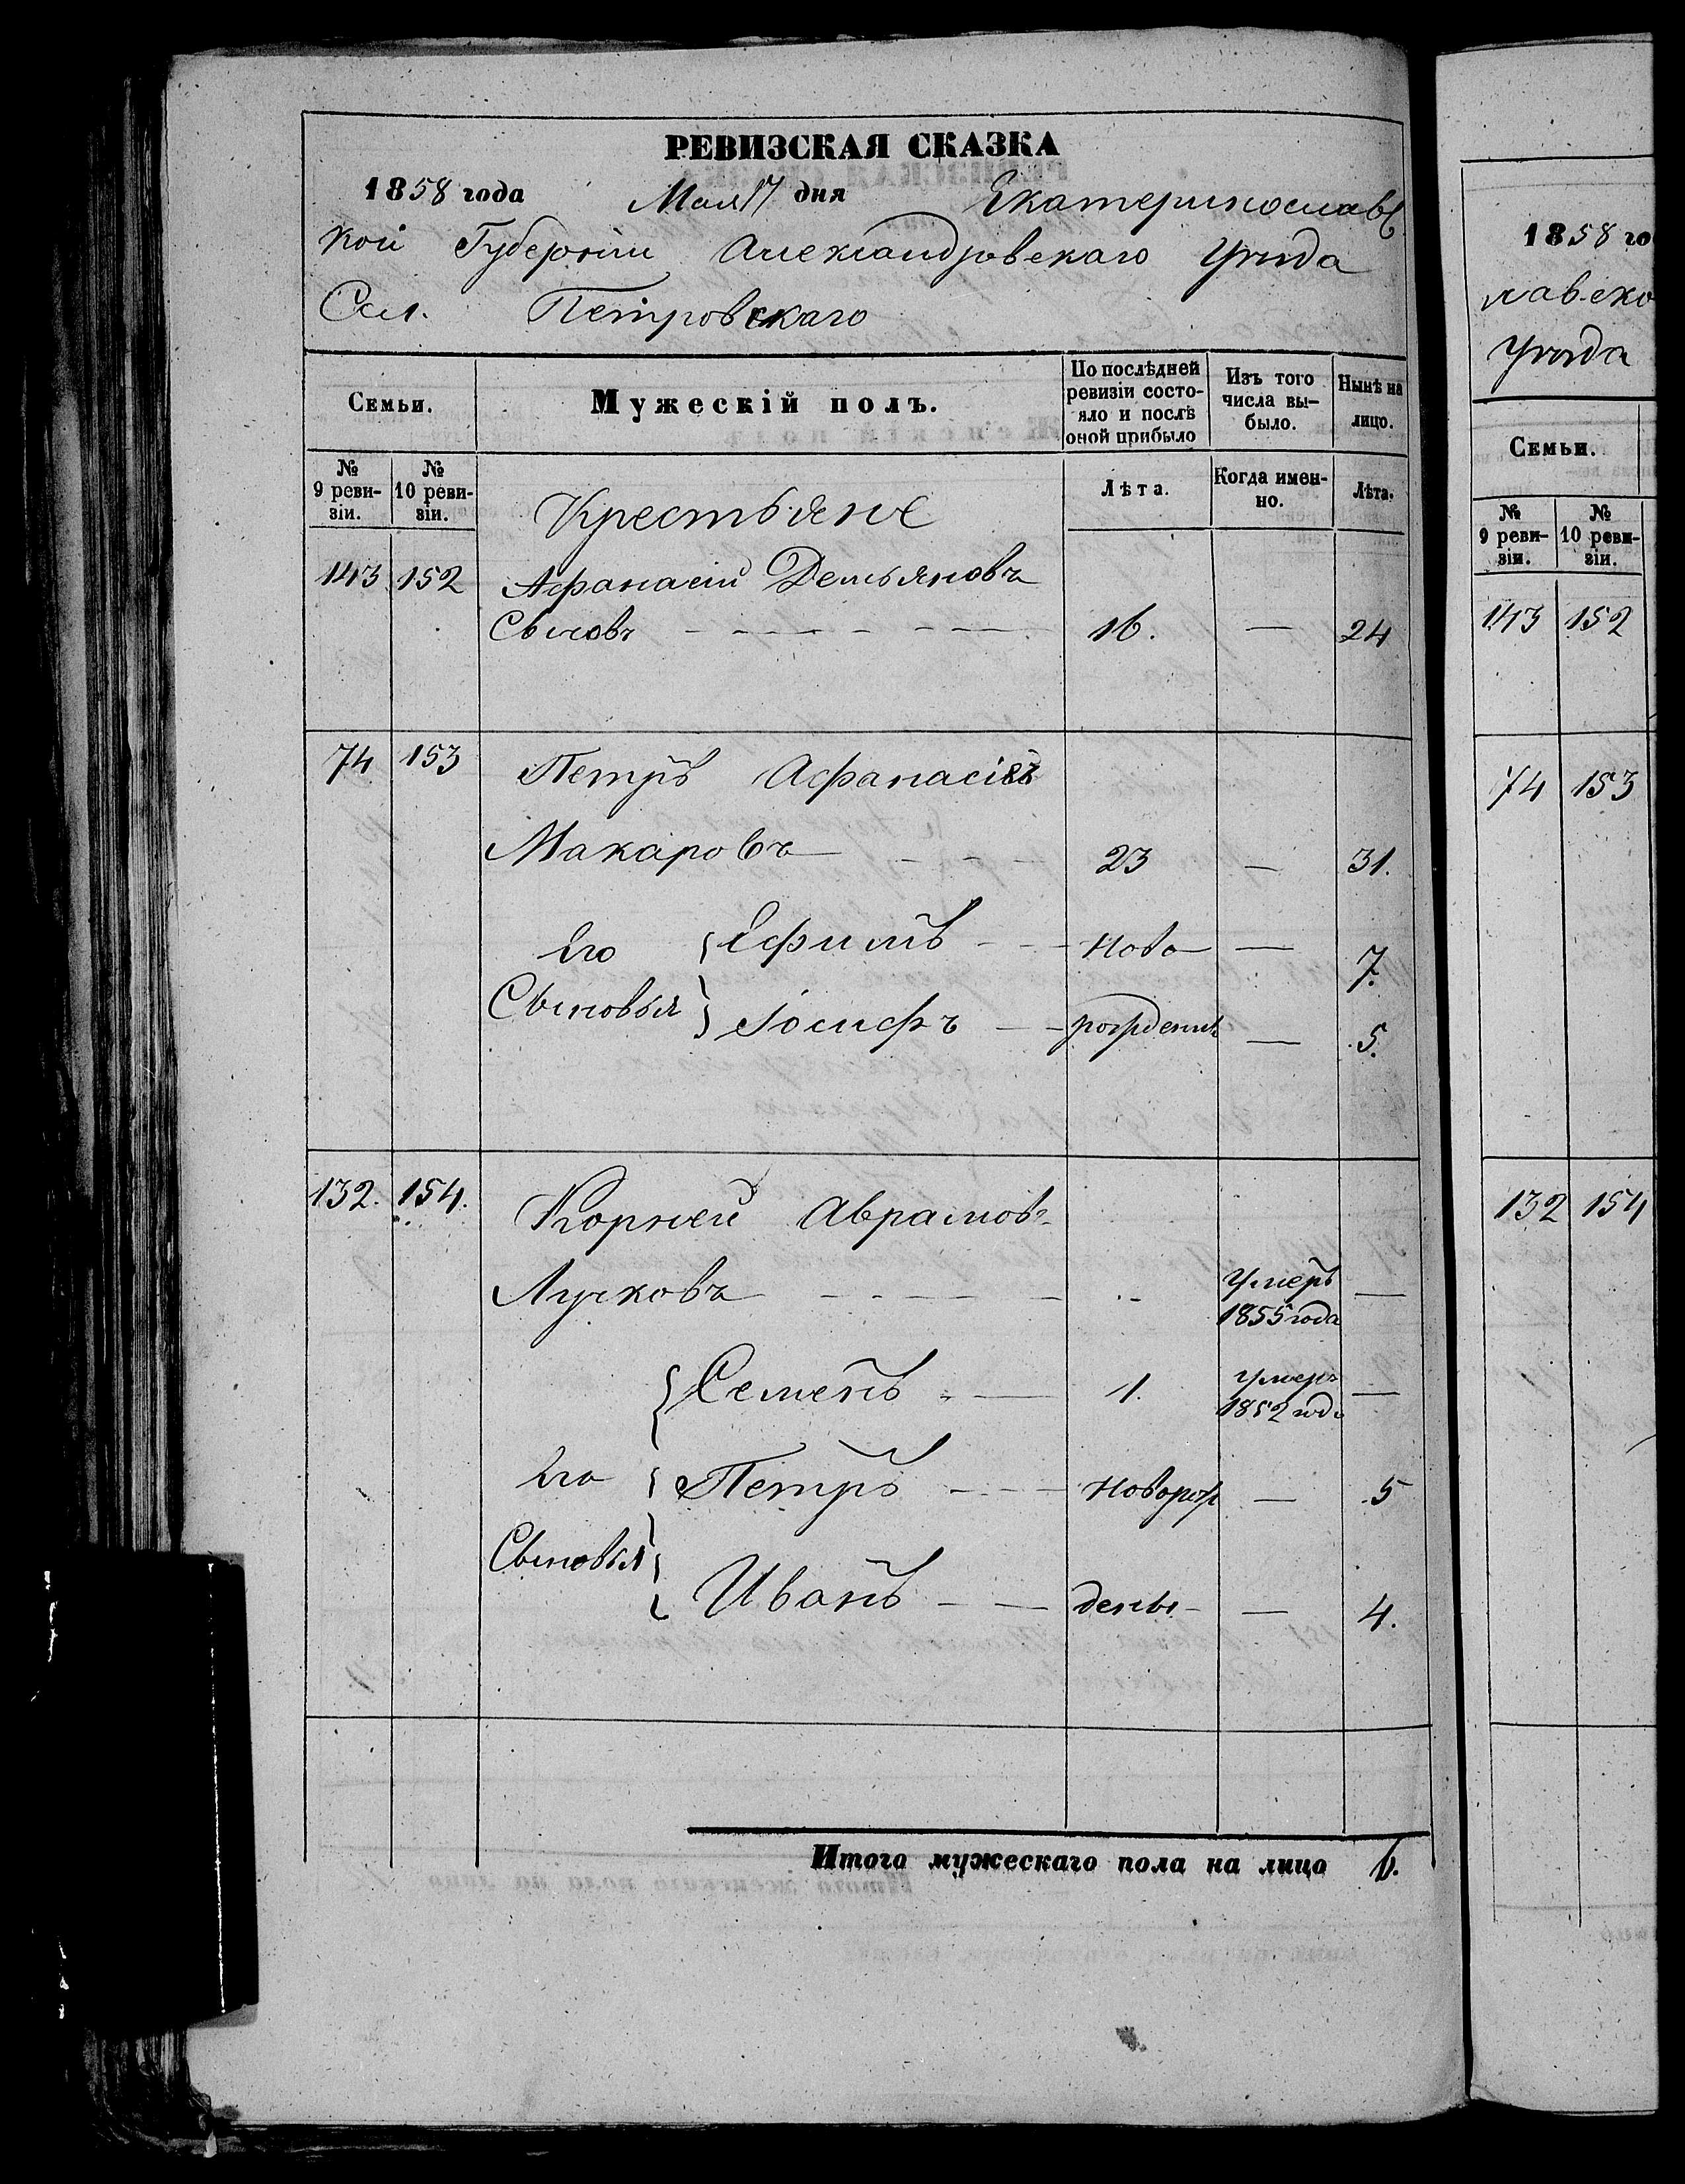 РЕВИЗСКАЯ СКАЗКА
1858 года Мая 17 дня Екатеринославс
кой Губерніи Александровскаго Уѣзда
Сел. Петровскаго
Семьи.
Мужескій полъ.
По послѣдней ревизіи состо-
яло и послѣ оной прибыло
Изъ того числа вы-
было.
Нынѣ на лицо.
№ 9 реви-
зіи.
№ 10 реви-
зіи.
Лѣта.
Когда имен-
но.
Лѣта.
Крестьяне
143 152 Афанасій Демьяновъ
16. — 24
74 153 Петръ Афанасіевъ
Макаровъ 23 — 31.
Его Ефимъ Ново — 7.
Сыновья Іосифъ рожденые — 5.
132. 154. Корней Аврамовъ
Лучковъ Умеръ —
1855 года
Семенъ 1. умеръ —
1852 года
Его Петръ Новорож — 5
Сыновья Иванъ дены — 4.
Итого мужескаго пола на лицо 6.
1858 го
лавско
Уѣзда
Семьи.
№ 9 реви-
зіи.
№ 10 реви-
зіи.
143 152
74 153
132 154